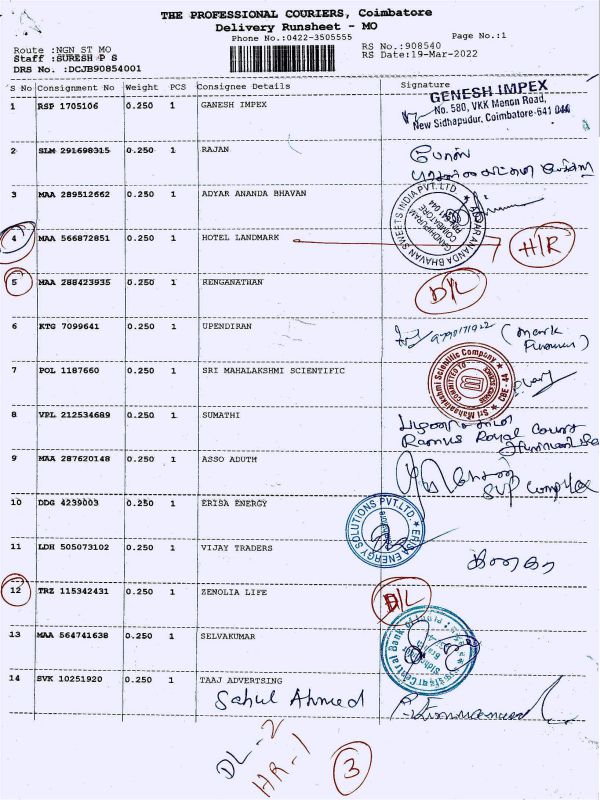 THE PROFESSIONAL COURIERS, Coimbatore
Delivery Runsheet - MO
Phone No.:0422-3505555 Page No.:1
Route :NGN ST MO RS No.:908540
Staff :SURESH P S RS Date:19-Mar-2022
DRS No. :DCJB90854001
S No Consignment No Weight PCS Consignee Details Signature
1 RSP 1705106 0.250 1 GANESH IMPEX
GENESH IMPEX
No. 580, VKK Menon Road,
New Sidhapudur, Coimbatore-641 044
2 SLM 291698315 0.250 1 RAJAN
3 MAA 289512662 0.250 1 ADYAR ANANDA BHAVAN
ADYAR ANANDA BHAVAN SWEETS INDIA PVT. LTD
GANDHIPURAM
COIMBATORE
4 MAA 566872851 0.250 1 HOTEL LANDMARK H/R
5 MAA 288423935 0.250 1 RENGANATHAN D/L
6 KTG 7099641 0.250 1 UPENDIRAN
7 POL 1187660 0.250 1 SRI MAHALAKSHMI SCIENTIFIC
Sri Mahalakshmi Scientific Company
8 VPL 212534689 0.250 1 SUMATHI
Ramus Royal Court
9 MAA 287620148 0.250 1 ASSO ADUTH
SVP Complex
10 DDG 4239003 0.250 1 ERISA ENERGY
ERISA ENERGY SOLUTIONS PVT.LTD.
11 LDH 505073102 0.250 1 VIJAY TRADERS
12 TRZ 115342431 0.250 1 ZENOLIA LIFE D/L
13 MAA 564741638 0.250 1 SELVAKUMAR
Central Bank of India
14 SVK 10251920 0.250 1 TAAJ ADVERTSING
Sahul Ahmed
DL-2
HR-1
3